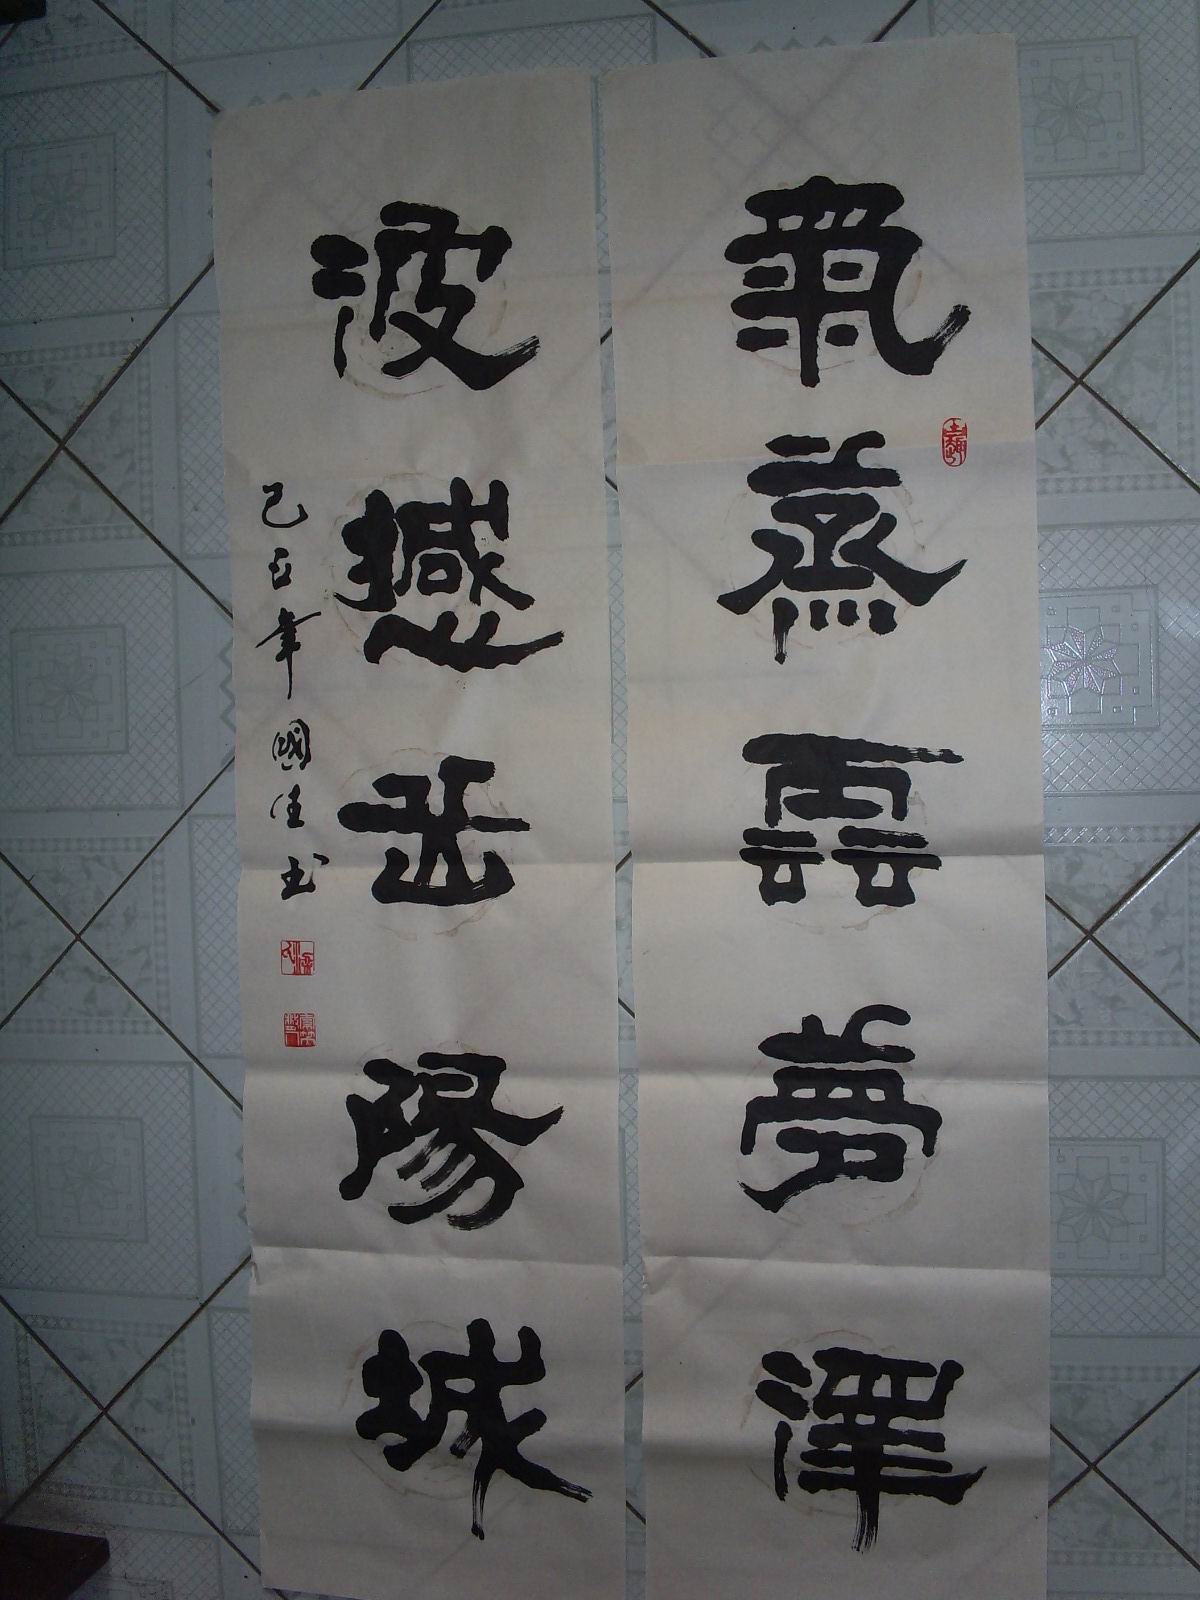 氣蒸雲夢澤
波撼岳陽城
己丑年國佳书